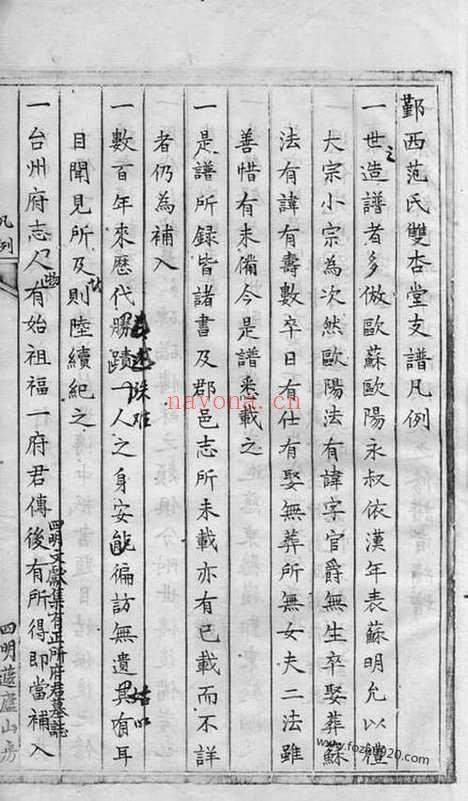 鄞西范氏雙杏堂支譜凡例
一世之造譜者多倣歐蘇歐陽永叔依漢年表蘇明允以禮
大宗小宗為次然歐陽法有諱字官爵無生卒娶葬蘇
法有諱有壽數卒日有仕有娶無葬所無女夫二法雖
善惜有未備今是譜悉載之
一是譜所録皆諸書及郡邑志所未載亦有已載而不詳
者仍為補入
一數百年來歷代勝蹟一人之身安能徧訪無遺其有耳
目聞見所及則陸續紀之
一台州府志人有始祖福一府君傳後有所得即當補入
四明文獻集有正所府君墓誌
凡例
四明蘧廬山房
navona.cn
www.fozhu920.com